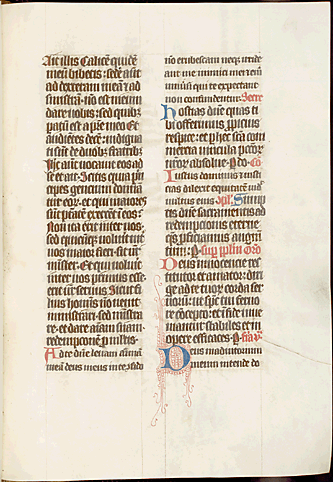 Ait illis Calicē quidē
meū bibetis: sedē aūt
ad dexterā meā ⁊ ad
sinistrā: nō est meum
dare vobis: sed quibꝫ
patū est a prē meo Et
audiētes decē: indigna
ti sunt de duobꝫ fratribꝫ
Ihc aūt vocauit eos ad
se et ait: Scitis quia prī
cipes gencium domīa
tur eoꝝ: et qui maiores
sūt ptātē exercēt ī eos:
Non ita erit inter vos:
sed quicūqꝫ voluerit int
vos maior fieri: sit ur̄
mīster: Et qui voluē
inter vos primus esse:
erit ur̄ seruus Sicut fi
lius hoīnis nō venit
ministrari: sed mīstra
re: et dare aīam suam
redempcionē ꝓ multis:
Ad te dn̄e leuaui aīmā
meā deus meus in te ꝯfido
nō erubescam neqꝫ irride
ant me inimici mei etem̄
uniūsi qui te expectant
non confundentur: Secre
Hostias dn̄e quas ti
bi offerimus ꝓpicius
respice: et ꝑ hec scā com
mercia vincula pctōꝝ
nr̄oꝝ absolue P do: Co
Iustus dominus ⁊ iusti
cias dilexit equitatē uid
uultus eius Sump
tis dn̄e sacramentis ad
redempcionis eterne
qs ꝓficiamus augmē
tum: P Sup pplm oro
Deus innocencie res
titutor et amator: diri
ge ad te tuoꝝ corda ser
uoꝝ: ut spū tui feruo
re ꝯcepto: et ī fide inue
niantur stabiles et in
opere efficaces P fia v
Deus in adiutorium
meum intende do